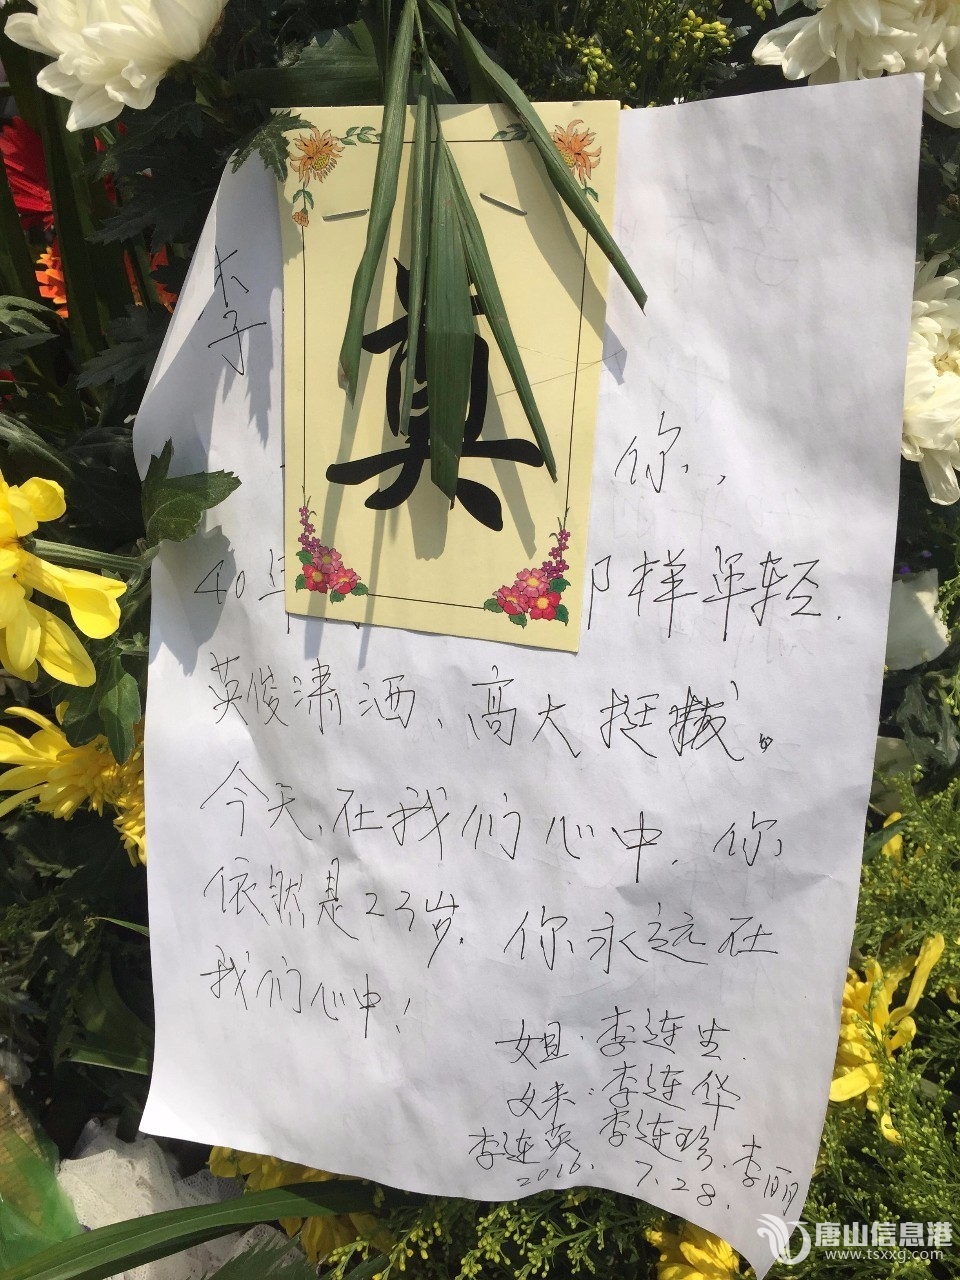 奠
李
你,
40年 那样年轻.
英俊潇洒、高大挺拔。
今天,在我们心中,你
依然是23岁.你永远在
我们心中!
姐:李连生.
妹:李连华
李连英 李连珍.李丽
2016. 7.28.
唐山信息港
www.tsxxg.com